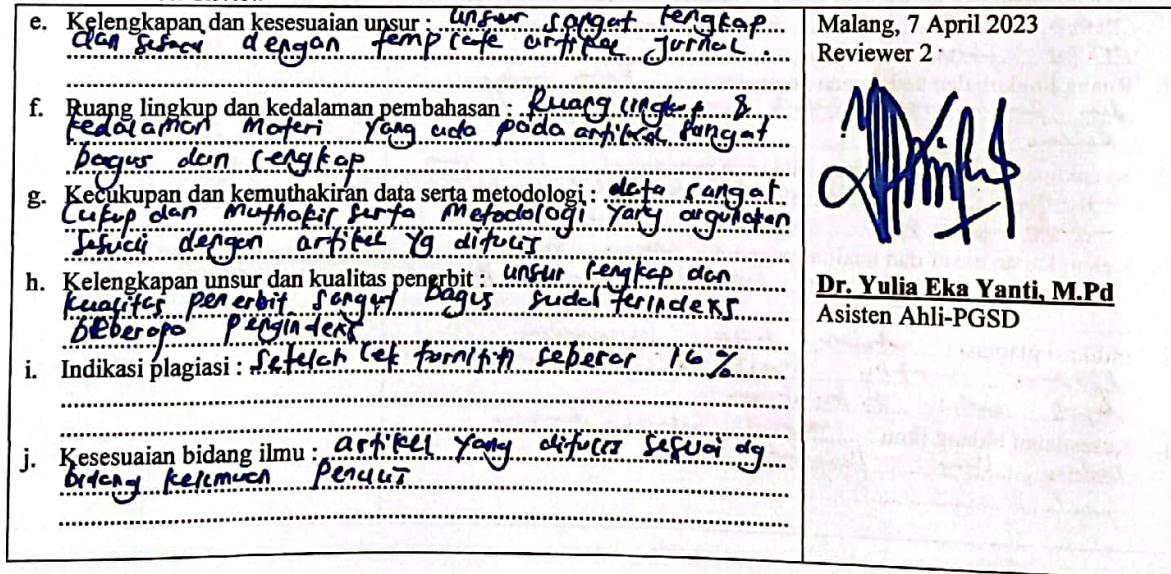 e. Kelengkapan dan kesesuaian unsur : unsur sangat lengkap
dan sesuai dengan template artikel jurnal.
f. Ruang lingkup dan kedalaman pembahasan : Ruang lingkup &
kedalaman materi yang ada pada artikel sangat
bagus dan lengkap
g. Kecukupan dan kemuthakiran data serta metodologi : data sangat
cukup dan muthakir serta metodologi yang digunakan
sesuai dengan artikel yg ditulis
h. Kelengkapan unsur dan kualitas penerbit : unsur lengkap dan
kualitas penerbit sangat bagus sudah terindeks
beberapa pengindeks
i. Indikasi plagiasi : Setelah cek turnitin sebesar 16%
j. Kesesuaian bidang ilmu : artikel yang ditulis sesuai dg
bidang keilmuan penulis
Malang, 7 April 2023
Reviewer 2
Dr. Yulia Eka Yanti, M.Pd
Asisten Ahli-PGSD